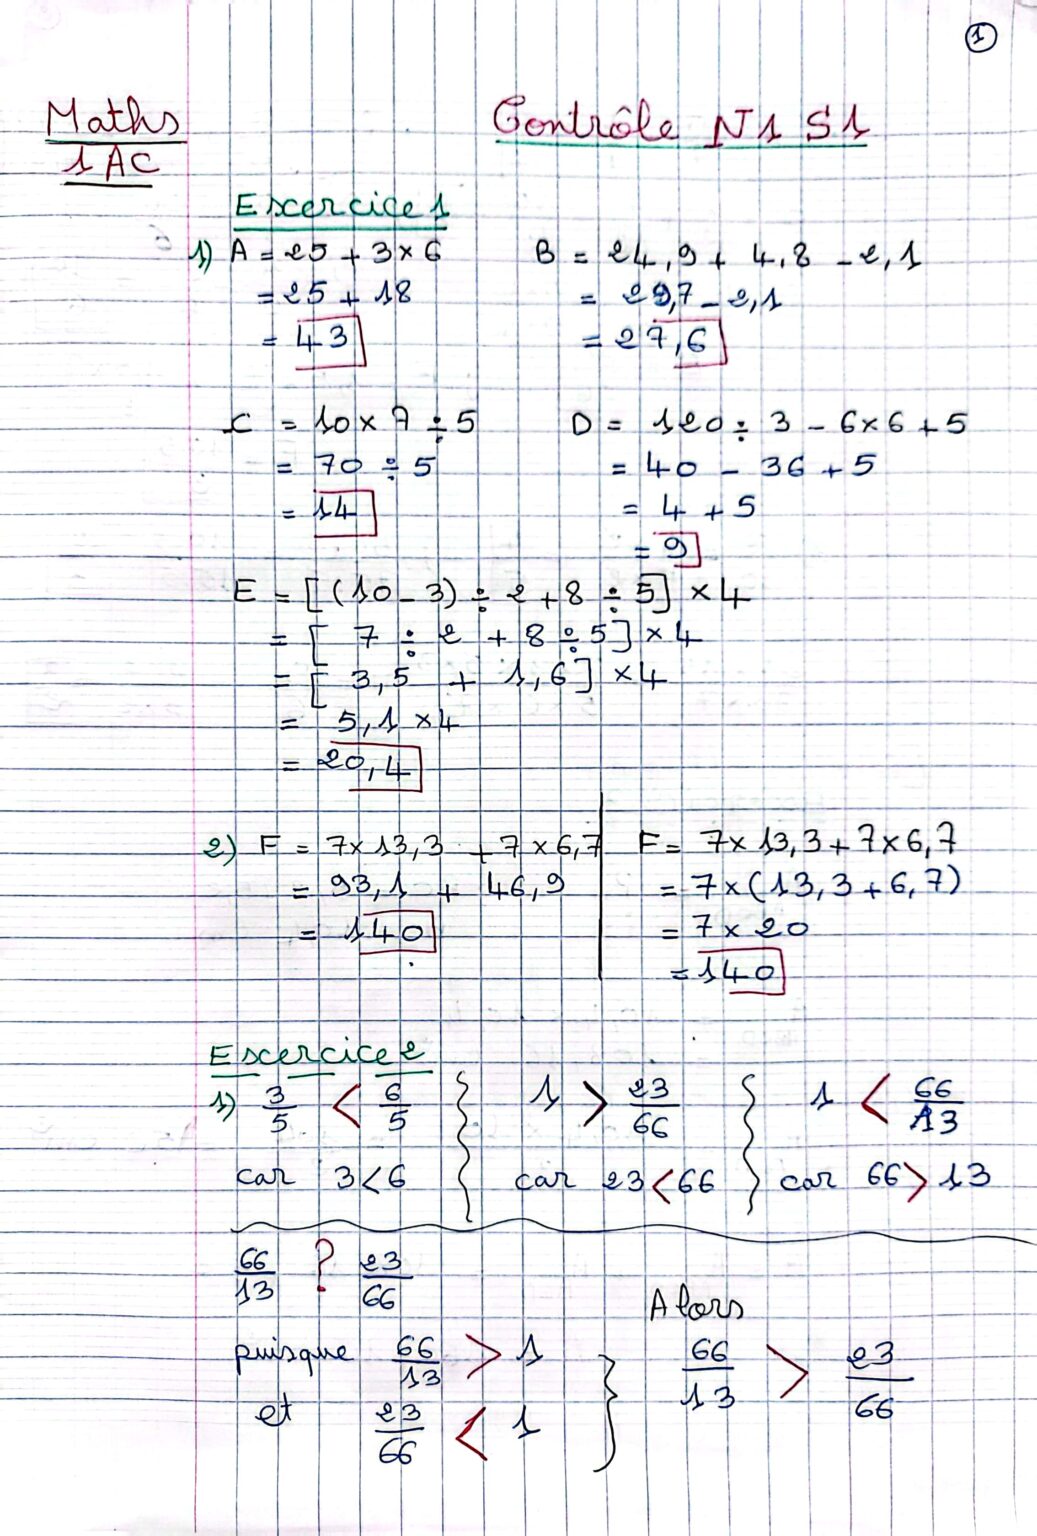 1
Maths
1 AC
Contrôle N1 S1
Exercice 1
1) A = 25 + 3 × 6
= 25 + 18
= 43
B = 24,9 + 4,8 - 2,1
= 29,7 - 2,1
= 27,6
C = 10 × 7 ÷ 5
= 70 ÷ 5
= 14
D = 120 ÷ 3 - 6×6 + 5
= 40 - 36 + 5
= 4 + 5
= 9
E = [(10 - 3) ÷ 2 + 8 ÷ 5] × 4
= [ 7 ÷ 2 + 8 ÷ 5] × 4
= [ 3,5 + 1,6] × 4
= 5,1 × 4
= 20,4
2) F = 7×13,3 + 7 × 6,7
= 93,1 + 46,9
= 140
F = 7×13,3 + 7×6,7
= 7×(13,3 + 6,7)
= 7 × 20
= 140
Exercice 2
1) 3/5 < 6/5
car 3 < 6
1 > 23/66
car 23 < 66
1 < 66/13
car 66 > 13
66/13 ? 23/66
puisque 66/13 > 1
et 23/66 < 1
Alors
66/13 > 23/66